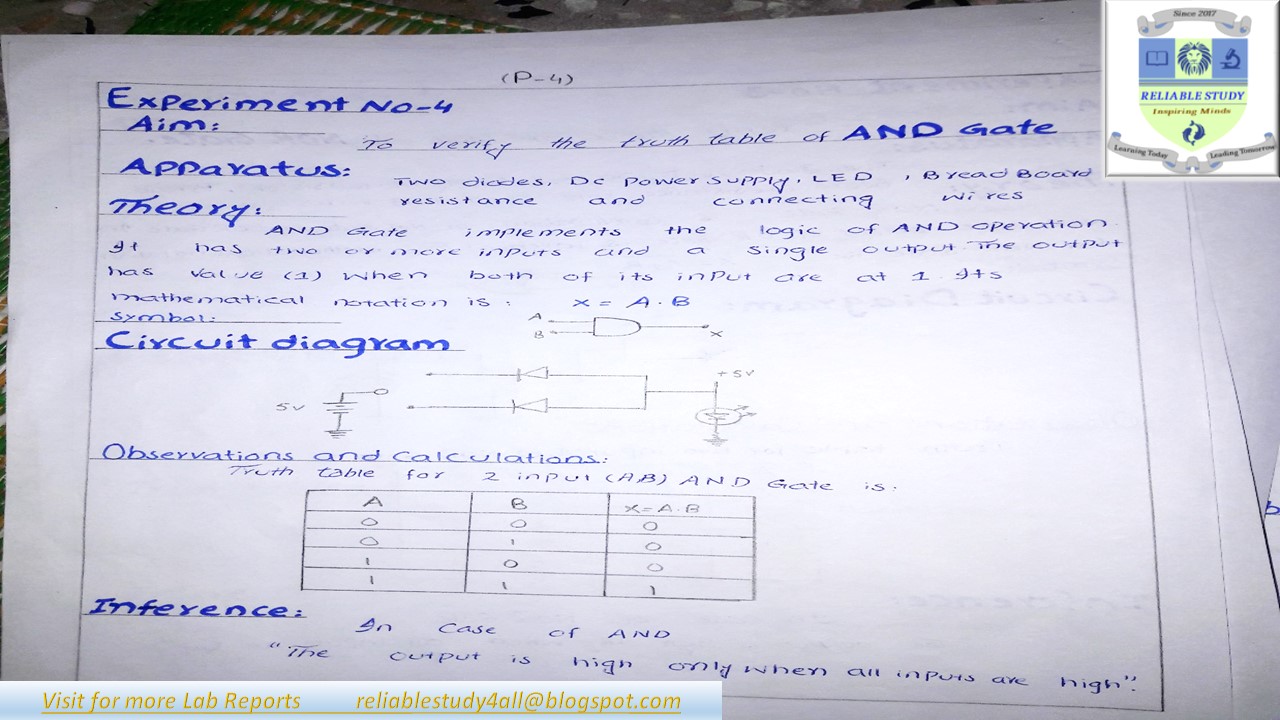 Since 2017
RELIABLE STUDY
Inspiring Minds
Learning Today Leading Tomorrow
(P-4)
Experiment No-4
Aim:
To verify the truth table of AND Gate
Apparatus:
Two diodes, DC power supply, LED , Bread Board
resistance and connecting wires
Theory:
AND Gate implements the logic of AND operation.
It has two or more inputs and a single output. The output
has value (1) when both of its input are at 1. Its
mathematical notation is : X = A.B
Symbol:
A
B
X
Circuit diagram
5v
+5v
Observations and Calculations:
Truth table for 2 input (AB) AND Gate is:
A B X=A.B
0 0 0
0 1 0
1 0 0
1 1 1
Inference:
In case of AND
"The output is high only when all inputs are high".
Visit for more Lab Reports reliablestudy4all@blogspot.com